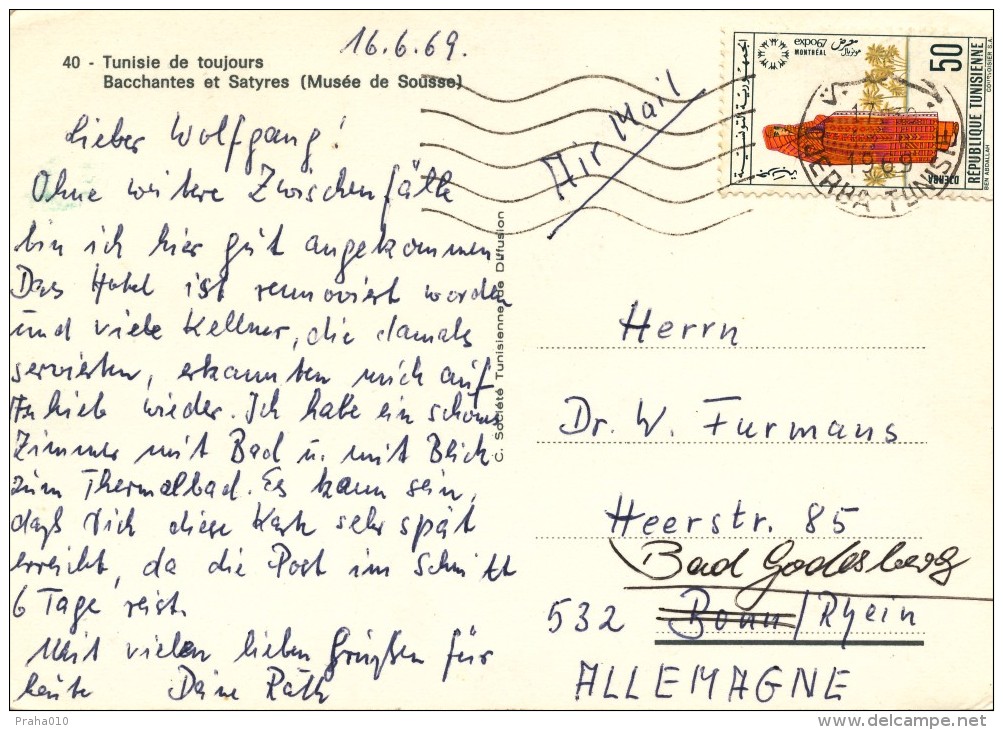 16.6.69.
40 - Tunisie de toujours
Bacchantes et Satyres (Musée de Sousse)
Lieber Wolfgang!
Ohne weitere Zwischenfälle
bin ich hier gut angekommen
Das Hotel ist renoviert worden
und viele Kellner, die damals
servierten, erkannten mich auf
Anhieb wieder. Ich habe ein schönes
Zimmer mit Bad u. mit Blick
zum Thermalbad. Es kann sein,
daß Dich diese Karte sehr spät
erreicht, da die Post im Schnitt
6 Tage reist.
Mit vielen lieben Grüßen für
heute Deine Käth
C. Société Tunisienne de Diffusion
Air Mail
expo67
MONTRÉAL
معرض
مونريال
الجمهورية التونسية
جربة
50
RÉPUBLIQUE TUNISIENNE
DJERBA
BEN ABDALLAH
COURVOISIER S.A.
17
1969
DJERBA TUNISIE
Herrn
Dr. W. Furmans
Heerstr. 85
Bad Godesberg
532 Bonn/Rhein
ALLEMAGNE
Praha010
delcampe.net